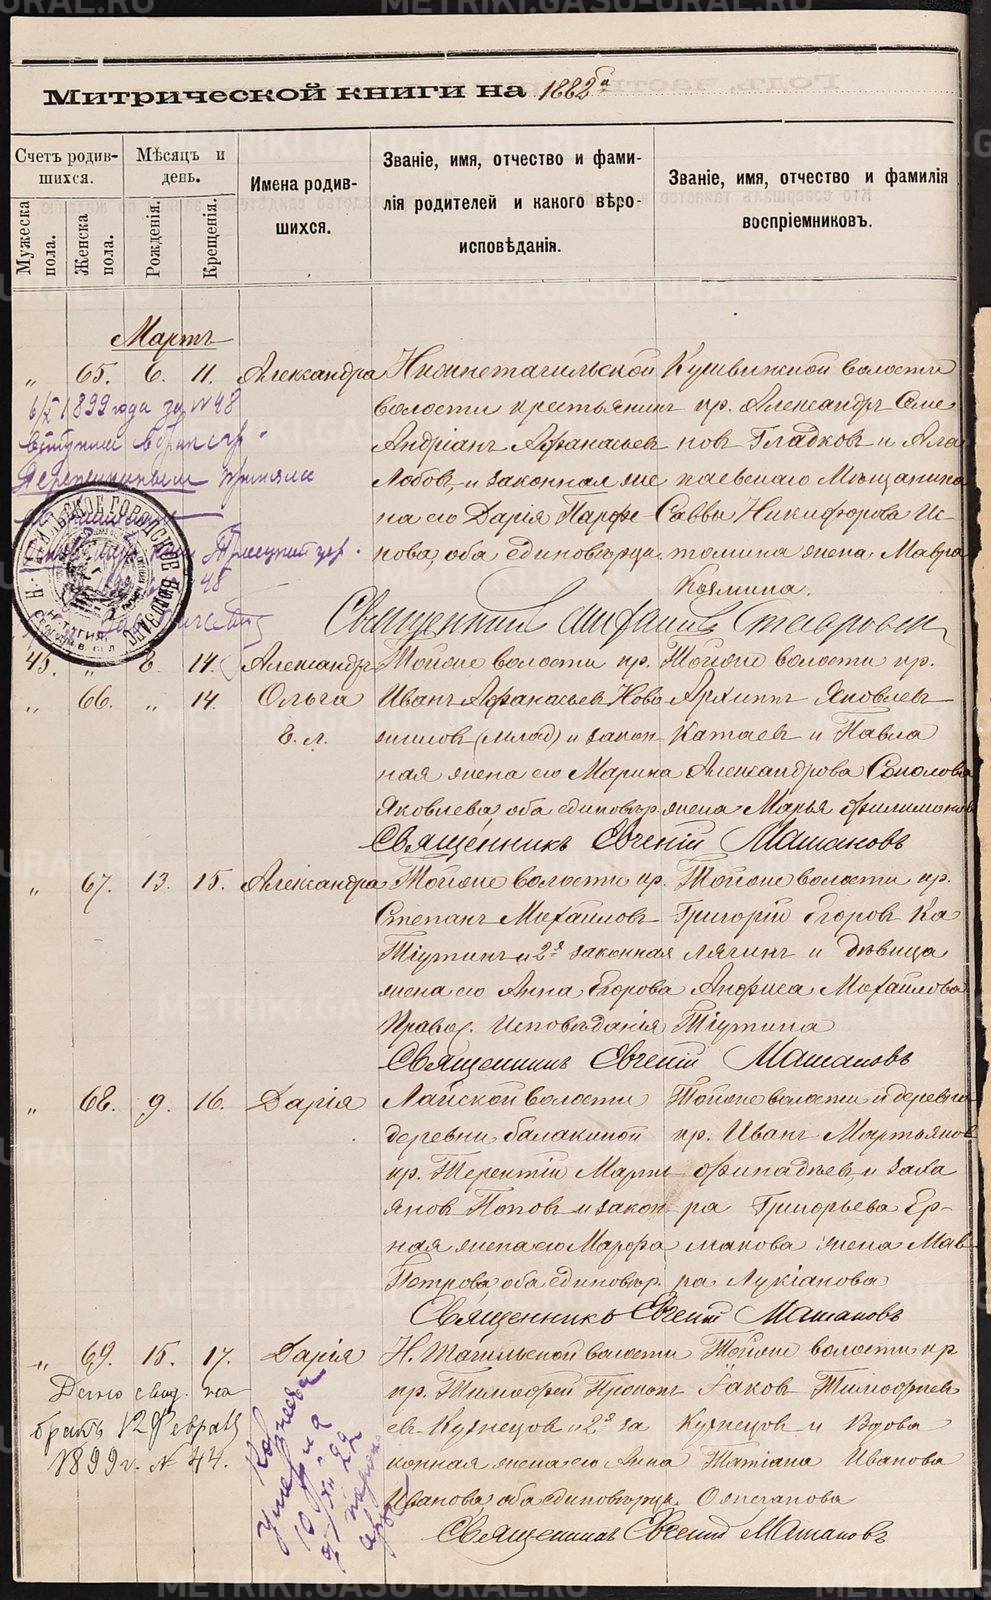 Митрической книги на 1882й
Счетъ родив-
шихся.
Мужеска
пола.
Женска
пола.
Мѣсяцъ и
день.
Рожденія.
Крещенія.
Имена родив-
шихся.
Званіе, имя, отчество и фами-
лія родителей и какого вѣро-
исповѣданія.
Званіе, имя, отчество и фамилія
воспріемниковъ.
Мартъ
„ 65. 6. 11. Александра
Нижнетагильской
волости крестьянинъ
Андріанъ Афанасьевъ
Лобовъ, и законная же
на его Дарія Парфе
нова, оба единовѣрцы.
Кушвинской волости
кр. Александръ Семе
новъ Гладковъ и Ала
паевскаго Мѣщанина
Саввы Никифорова Ис
томина жена Мавра
Козмина.
1899 года за № 48
Священникъ
45. „ 8. 14. Александръ
„ 66. „ 14. Ольга
Б. л.
Тойже волости кр.
Иванъ Афанасьевъ Ново
жиловъ (млад) и закон
ная жена его Марина
Яковлева, оба единовѣр.
Тойже волости кр.
Архиппъ Яковлевъ
Катаевъ и Павла
Александрова Соколова
жена Марья Филимонов
Священникъ Евгеній Машановъ
„ 67. 13. 15. Александра
Тойже волости кр.
Степанъ Михайловъ
Тіутинъ и 2й законная
жена его Анна Егорова
Правос. Исповѣданія
Тойже волости кр.
Григорій Егоровъ Ка
лягинъ и дѣвица
Анфиса Михайлова
Тіутина
Священникъ Евгеній Машановъ
„ 68. 9. 16. Дарія
Лайской волости
деревни Балакиной
кр. Терентій Марть
яновъ Поповъ и закон
ная жена его Марфа
Петрова, оба единовѣр.
Тойже волости и деревни
кр. Иванъ Мартьянов
Финадѣевъ, и Заха
ра Григорьева Ер-
макова жена Мав
ра Лукіанова
Священникъ Евгеній Машановъ
„ 69. 15. 17. Дарія
Н. Тагильской волости
кр. Тимофей Прокопь
евъ Кузнецовъ и 2й за
конная жена его Анна
Иванова, оба единовѣрцы.
Тойже волости кр
Іаковъ Тимофеев
Кузнецовъ и Вдова
Татіана Иванова
Ожеганова
Дано свид. на
бракъ 12 Февраля
1899 г. № 44.
Священникъ Евгеній Машановъ